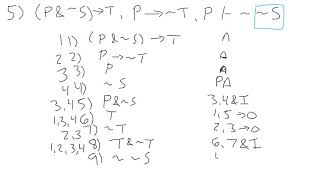 5) (P&~S)→T, P→~T, P ⊢ ~~S
1 1) (P&~S)→T A
2 2) P→~T A
3 3) P A
4 4) ~S PA
3,4 5) P&~S 3,4&I
1,3,4 6) T 1,5→O
2,3 7) ~T 2,3→O
1,2,3,4 8) T&~T 6,7&I
9) ~~S